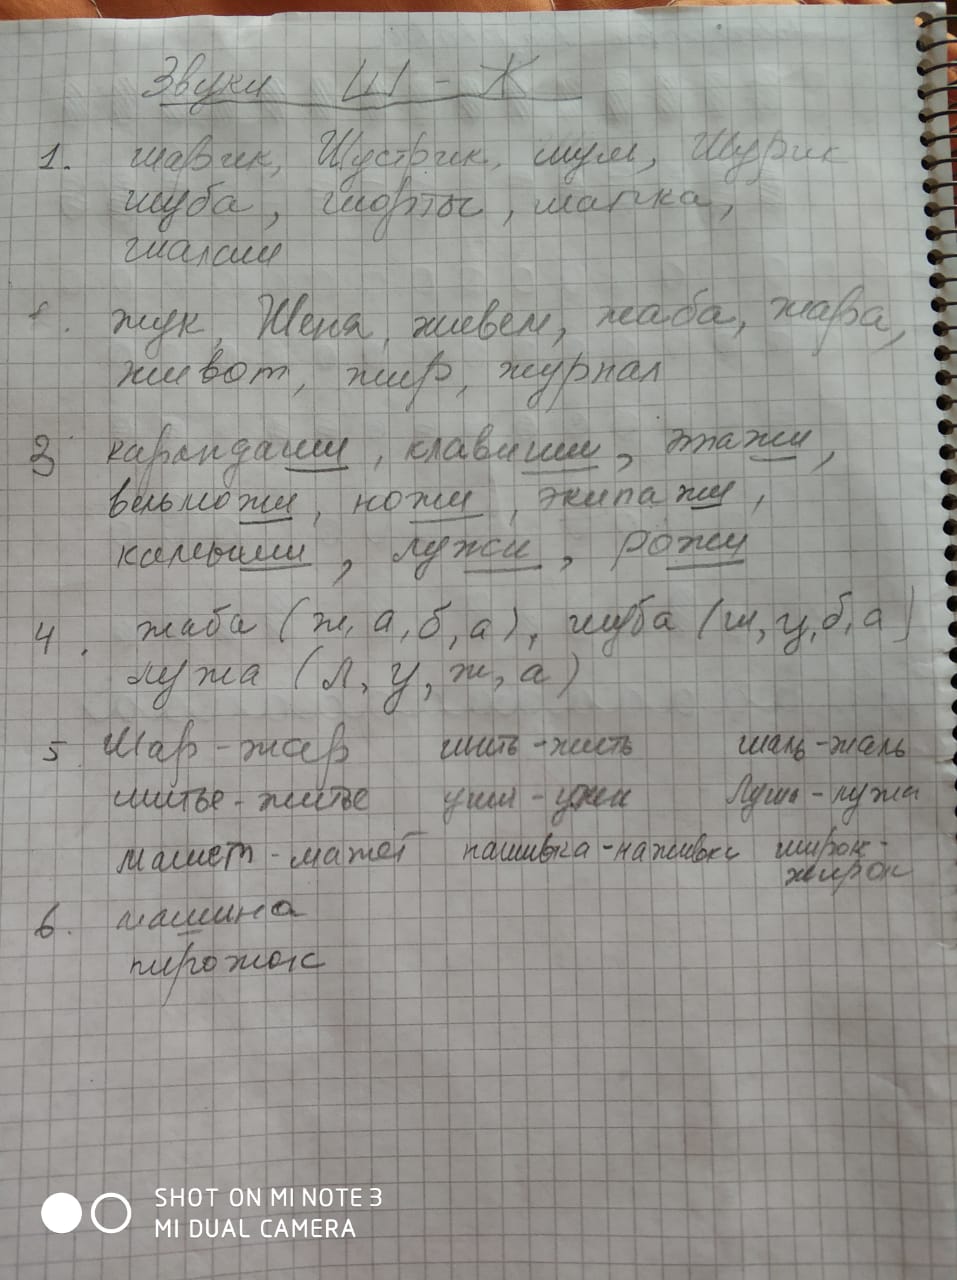 Звуки Ш - Ж
1. шарик, Шустрик, шум, Шурик
шуба, шорты, шапка,
шалаш
жук, Женя, живем, жаба, жара,
живот, жир, журнал
3 карандаши, клавиши, этажи,
вельможи, ножи, экипажи,
камыши, лужи, рожи
4. жаба (ж, а, б, а), шуба (ш, у, б, а)
лужа (л, у, ж, а)
5 Шар - жар шить - жить шаль - жаль
шитье - житье уши - ужи Луша - лужа
машет - мажет нашивка - наживка широк -
жирок
6. машина
пирожок
SHOT ON MI NOTE 3
MI DUAL CAMERA